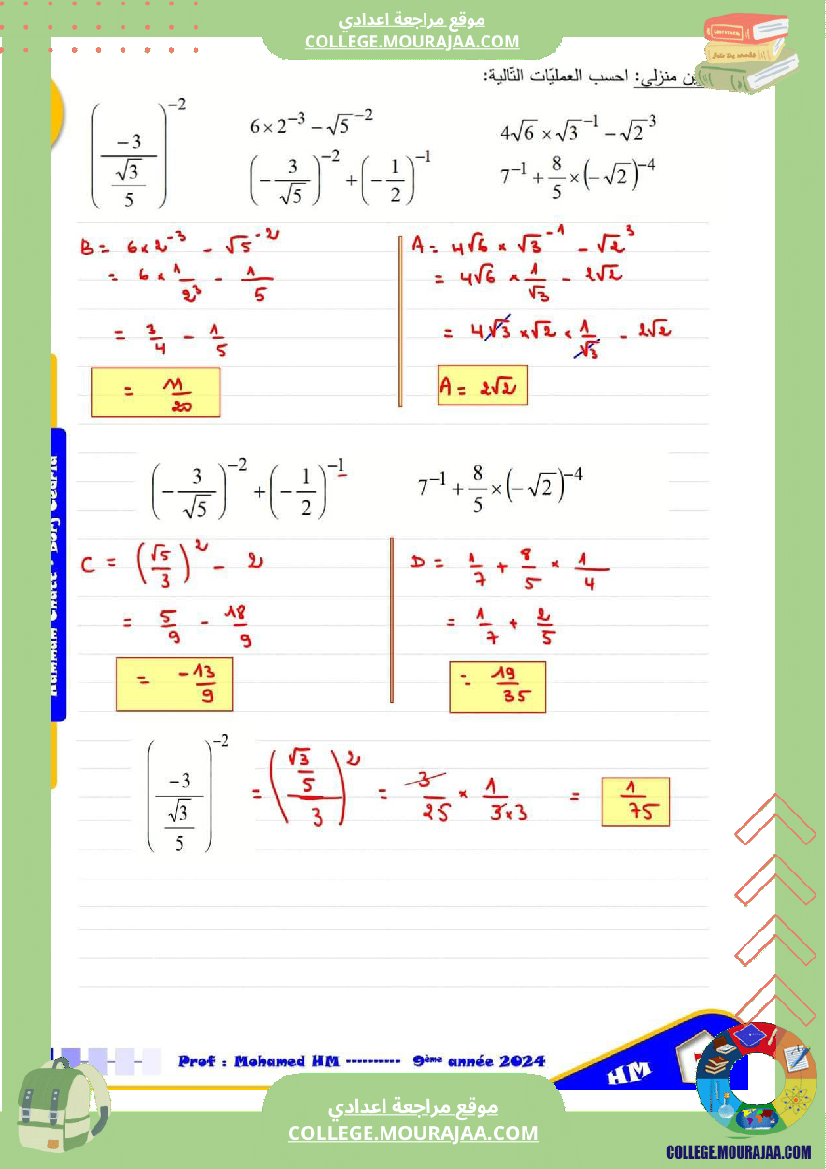 موقع مراجعة اعدادي
COLLEGE.MOURAJAA.COM
ين منزلي: احسب العمليّات التّالية:
((-3)/(√3/5))⁻²
6×2⁻³ − √5⁻²
4√6 × √3⁻¹ − √2³
(−3/√5)⁻² + (−1/2)⁻¹
7⁻¹ + 8/5 × (−√2)⁻⁴
B = 6×2⁻³ − √5⁻²
= 6×1/2³ − 1/5
= 3/4 − 1/5
= 11/20
A = 4√6 × √3⁻¹ − √2³
= 4√6 × 1/√3 − 2√2
= 4√3 × √2 × 1/√3 − 2√2
A = 2√2
(−3/√5)⁻² + (−1/2)⁻¹
7⁻¹ + 8/5 × (−√2)⁻⁴
C = (√5/3)² − 2
= 5/9 − 18/9
= −13/9
D = 1/7 + 8/5 × 1/4
= 1/7 + 2/5
= 19/35
((-3)/(√3/5))⁻² = ((√3/5)/3)² = 3/25 × 1/(3×3) = 1/75
Prof : Mohamed HM ---------- 9ème année 2024
HM
موقع مراجعة اعدادي
COLLEGE.MOURAJAA.COM
COLLEGE.MOURAJAA.COM